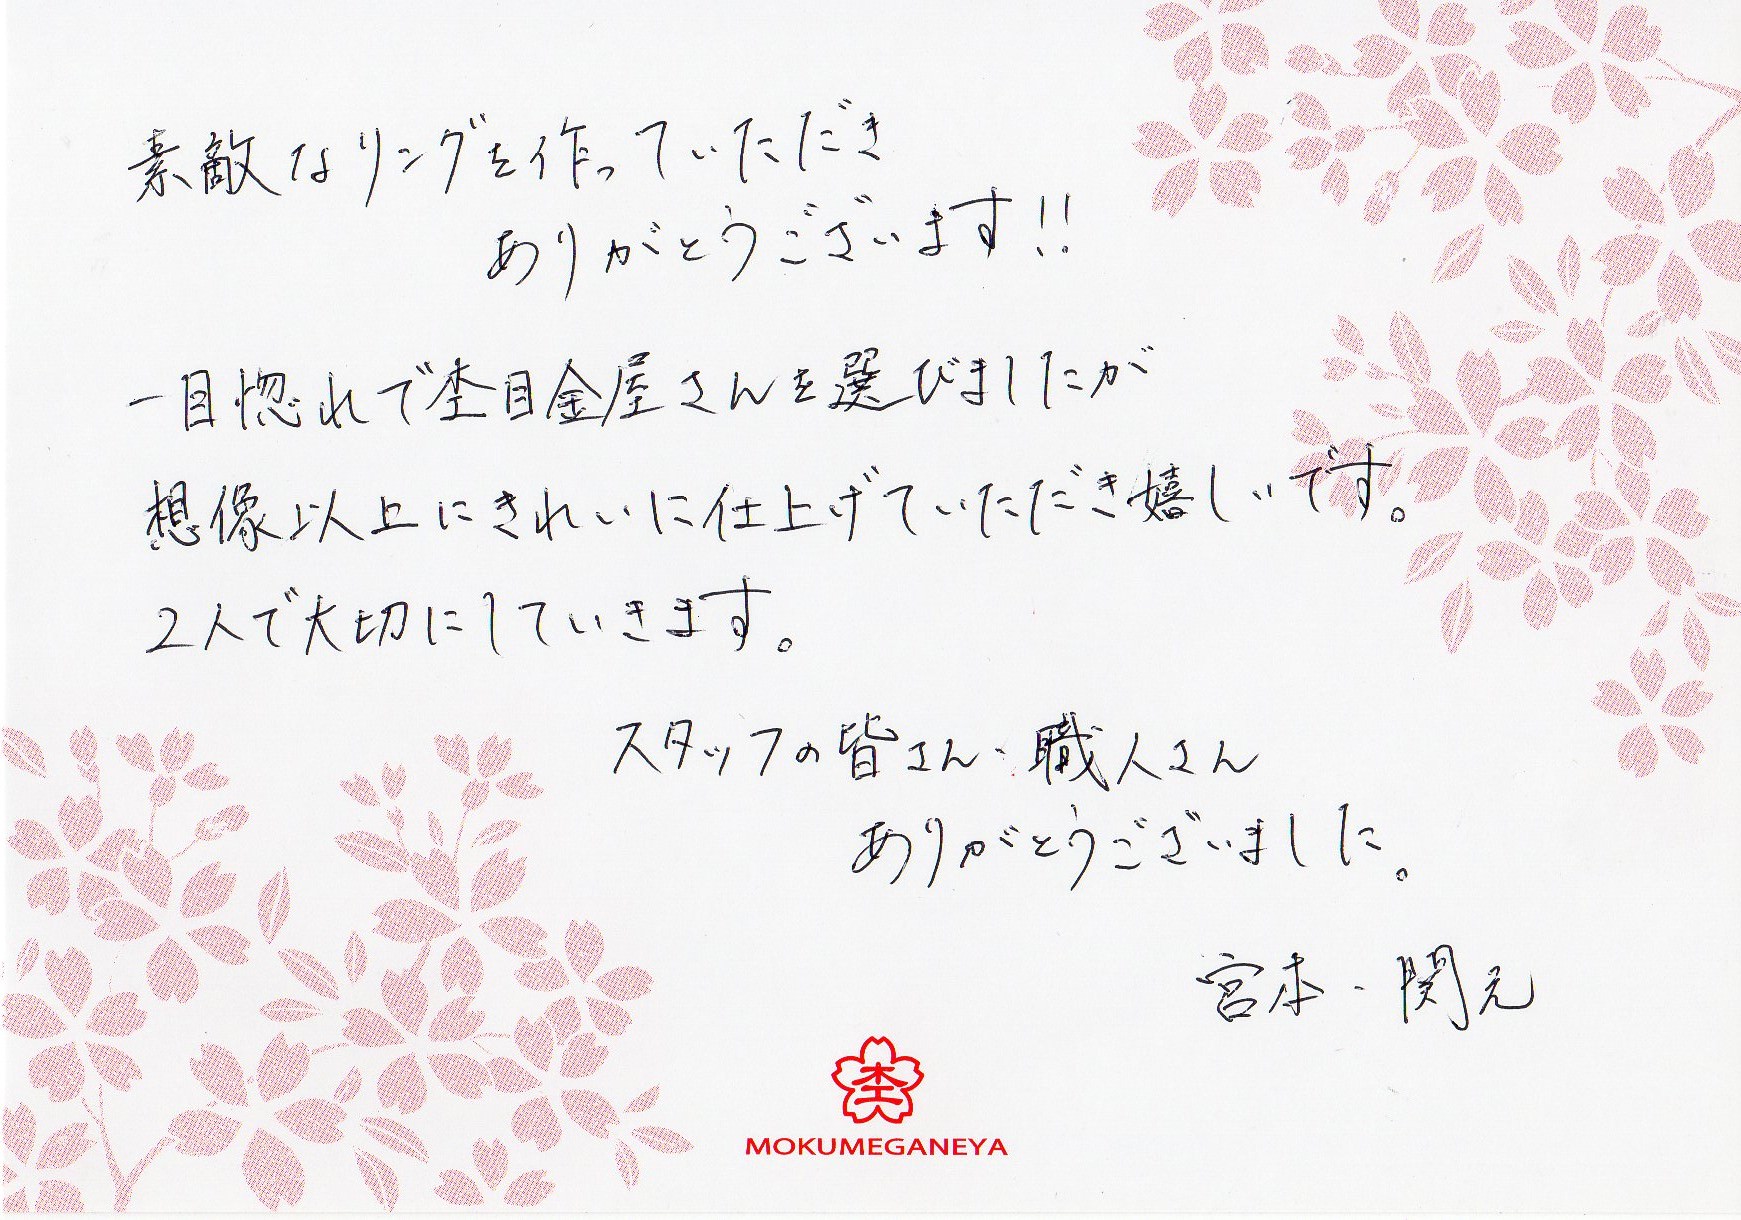 素敵なリングを作っていただき
ありがとうございます!!
一目惚れで杢目金屋さんを選びましたが
想像以上にきれいに仕上げていただき嬉しいです。
2人で大切にしていきます。
スタッフの皆さん・職人さん
ありがとうございました。
宮本・関元
杢
MOKUMEGANEYA